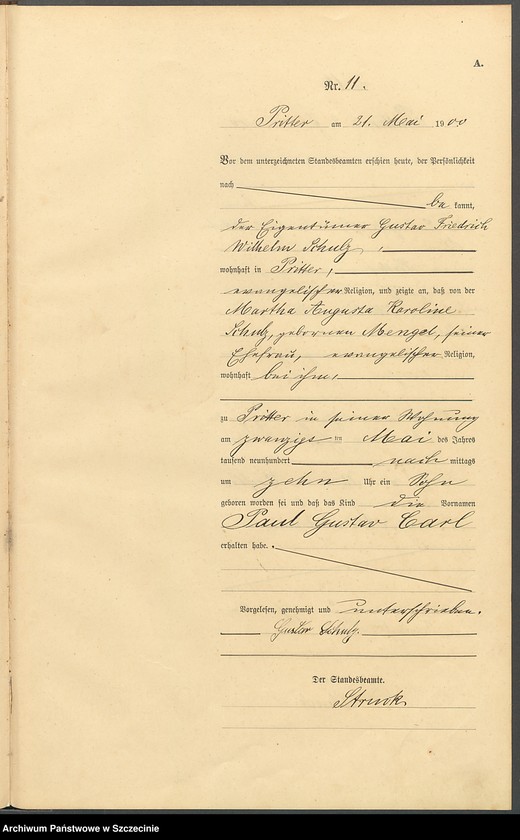 A.
Nr. 11.
Pritter am 21. Mai 1900
Vor dem unterzeichneten Standesbeamten erschien heute, der Persönlichkeit
nach
be kannt,
der Eigentümer Gustav Friedrich
Wilhelm Schulz,
wohnhaft in Pritter,
evangelischer Religion, und zeigte an, daß von der
Martha Augusta Karoline
Schulz, gebornen Mengel, seiner
Ehefrau, evangelischer Religion,
wohnhaft bei ihm,
zu Pritter in seiner Wohnung
am zwanzigs ten Mai des Jahres
tausend neunhundert nach mittags
um zehn Uhr ein Sohn
geboren worden sei und daß das Kind die Vornamen
Paul Gustav Carl
erhalten habe.
Vorgelesen, genehmigt und unterschrieben.
Gustav Schulz.
Der Standesbeamte.
Struck
Archiwum Państwowe w Szczecinie